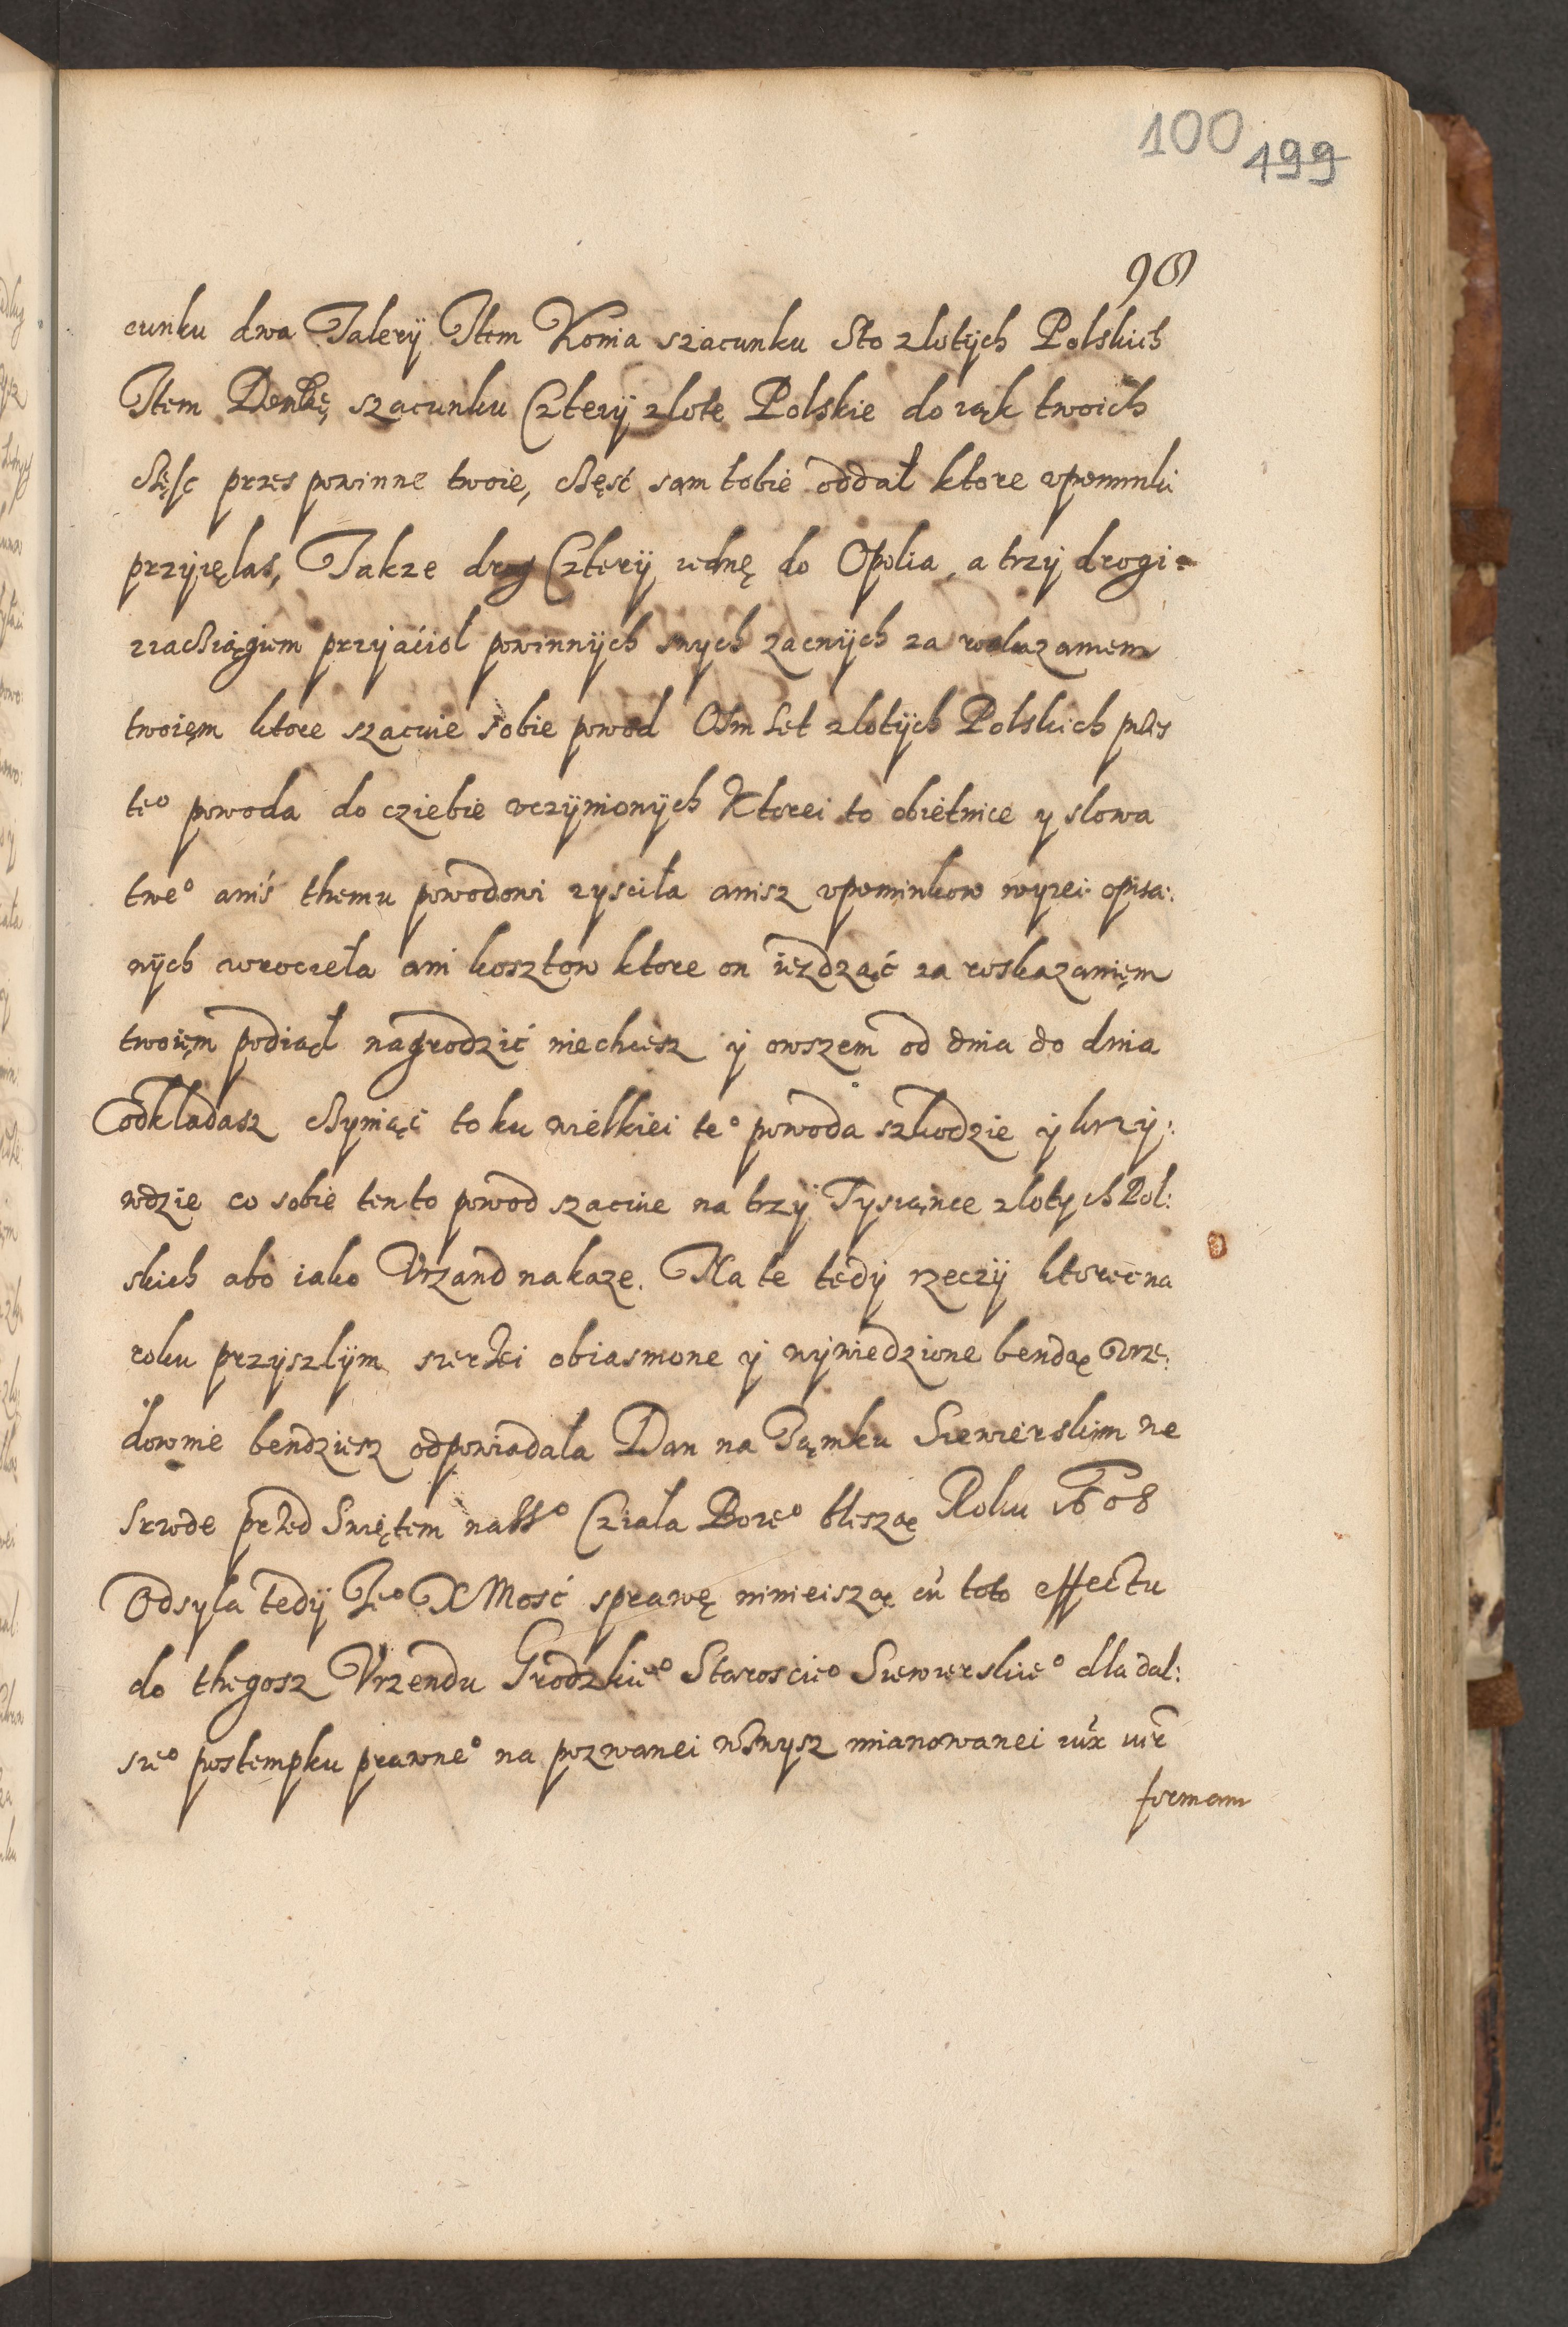 100 199
98
cunku dwa Talery Item Konia szacunku Sto zlotych Polskich
Item szacunku Cztery zlote Polskie do rąk twoich
częsc przes powinne twoie, częsć sam tobie oddał ktore vpominki
przyięlas, Takze drog Cztery iednę do Opolia, a trzy drogi
zaciągiem przyiaćiol powinnych swych zacnych za roskazaniem
twoięm ktore szacuie sobie powod Osm set zlotych Polskich przes
te° powoda do cziebie vczynionych Ktorei to obietnice y slowa
twe° aniś themu powodowi zyscila anisz vpominkow wyzei opisa:
nych wrocieła ani kosztow ktore on iezdząć za roskazanięm
twoięm podiął nagrodzić niechcesz y owszem od dnia do dnia
odkladasz czyniąc to ku wielkiei te° powoda szkodzie y krzy:
wdzie co sobie tento powod szacuie na trzy Tysiąnce zlotych Pol:
skich abo iako Vrzand nakaze. Na te tedy rzeczy ktorec na
roku przyszlym szerzei obiasnione y wywiedzione bendąę Vrzę:
downie bendziesz odpowiadala Dan na Zamku Siewierskim we
srzode przed Swiętem Cziała Boze° blesząę Roku 1608
Odsyla tedy Je° X Mosć sprawę ninieisząę cū toto effectu
do thegosz Vrzendu Grodzkie° Staroscie° Siewierskie° dla dal:
sze° postempku prawne° na pozwanei wzwysz mianowanei iux iur̄
formam